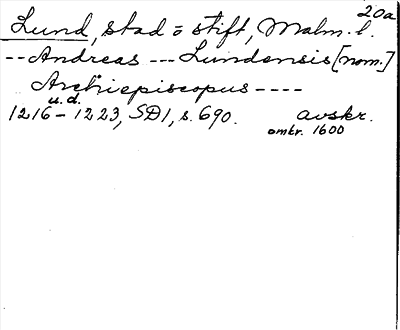 20a
Lund, stad o stift, Malm. l.
-- Andreas --- Lundensis [nom.]
Archiepiscopus ----
u.d.
1216-1223, SD1, s. 690. avskr.
omkr. 1600